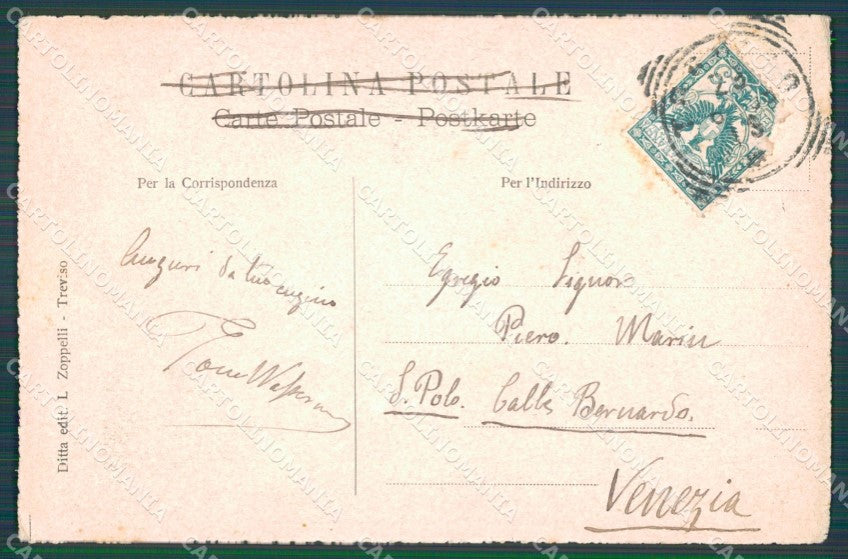 CARTOLINA POSTALE
Carte Postale - Postkarte
Per la Corrispondenza
Per l'Indirizzo
Auguri da tuo cugino
Egregio Signor
Piero. Marin
S. Polo. Calle Bernardo.
Venezia
Ditta edit. L. Zoppelli - Treviso
CARTOLINOMANIA